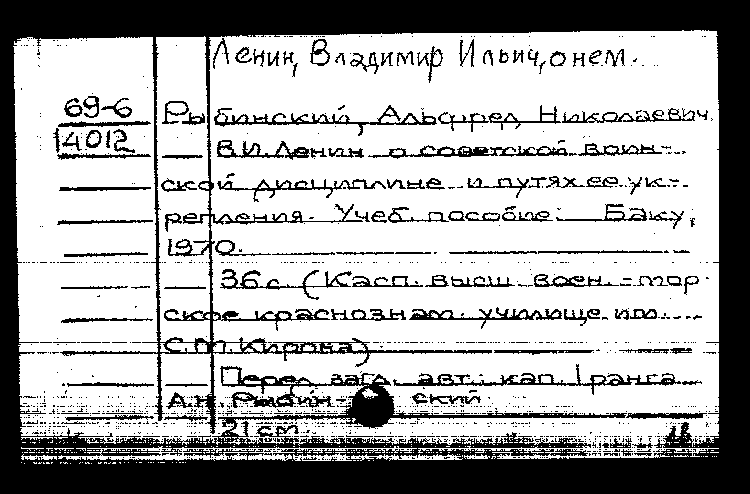 Ленин, Владимир Ильич, о нем.
69-6 Рыбинский, Альфред Николаевич
4012 В.И. Ленин о советской воин-
ской дисциплине и путях ее ук-
репления. Учеб. пособие. Баку,
1970.
36 с. (Касп. высш. воен.-мор
ское краснознам. училище им.
С.М. Кирова)
Перед загл. авт.: кап. I ранга
А.Н. Рыбин- ский
21 см.